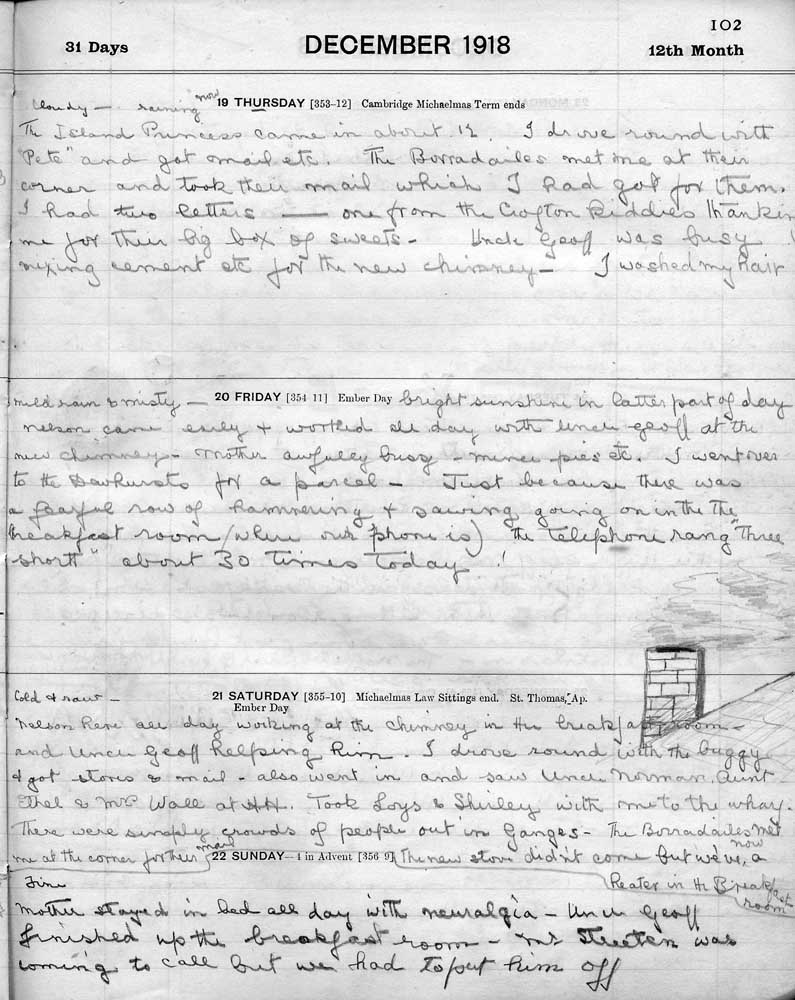 102
31 Days DECEMBER 1918 12th Month
Cloudy — raining now 19 THURSDAY [353-12] Cambridge Michaelmas Term ends
The Island Princess came in about 12. I drove round with
"Pete" and got mail etc. The Borradailes met me at their
corner and took their mail which I had got for them.
I had two letters — one from the Crofton kiddies thankin
me for their big box of sweets - Uncle Geoff was busy
mixing cement etc for the new chimney — I washed my hair
mild rain & misty — 20 FRIDAY [354-11] Ember Day bright sunshine in latter part of day
Nelson came early & worked all day with Uncle Geoff at the
new chimney - Mother awfully busy - mince pies etc. I went over
to the Dewhursts for a parcel - Just because there was
a fearful row of hammering & sawing going on in the the
breakfast room (where our 'phone is) the telephone rang "Three
short" about 30 times today!
Cold & raw — 21 SATURDAY [355-10] Michaelmas Law Sittings end. St. Thomas, Ap.
Ember Day
Nelson here all day working at the chimney in the breakfast room -
and Uncle Geoff helping him. I drove round with the buggy
& got stores & mail - also went in and saw Uncle Norman, Aunt
Ethel & Mrs Wall at HH. Took Loys & Shirley with me to the wharf.
There were simply crowds of people out in Ganges - The Borradailes met
me at the corner for their mail 22 SUNDAY—4 in Advent [356-9] The new stove didn't come but we've now a
heater in the Breakfast room
Fine
Mother stayed in bed all day with neuralgia - Uncle Geoff
finished up the breakfast room - Mr Streeten was
coming to call but we had to put him off